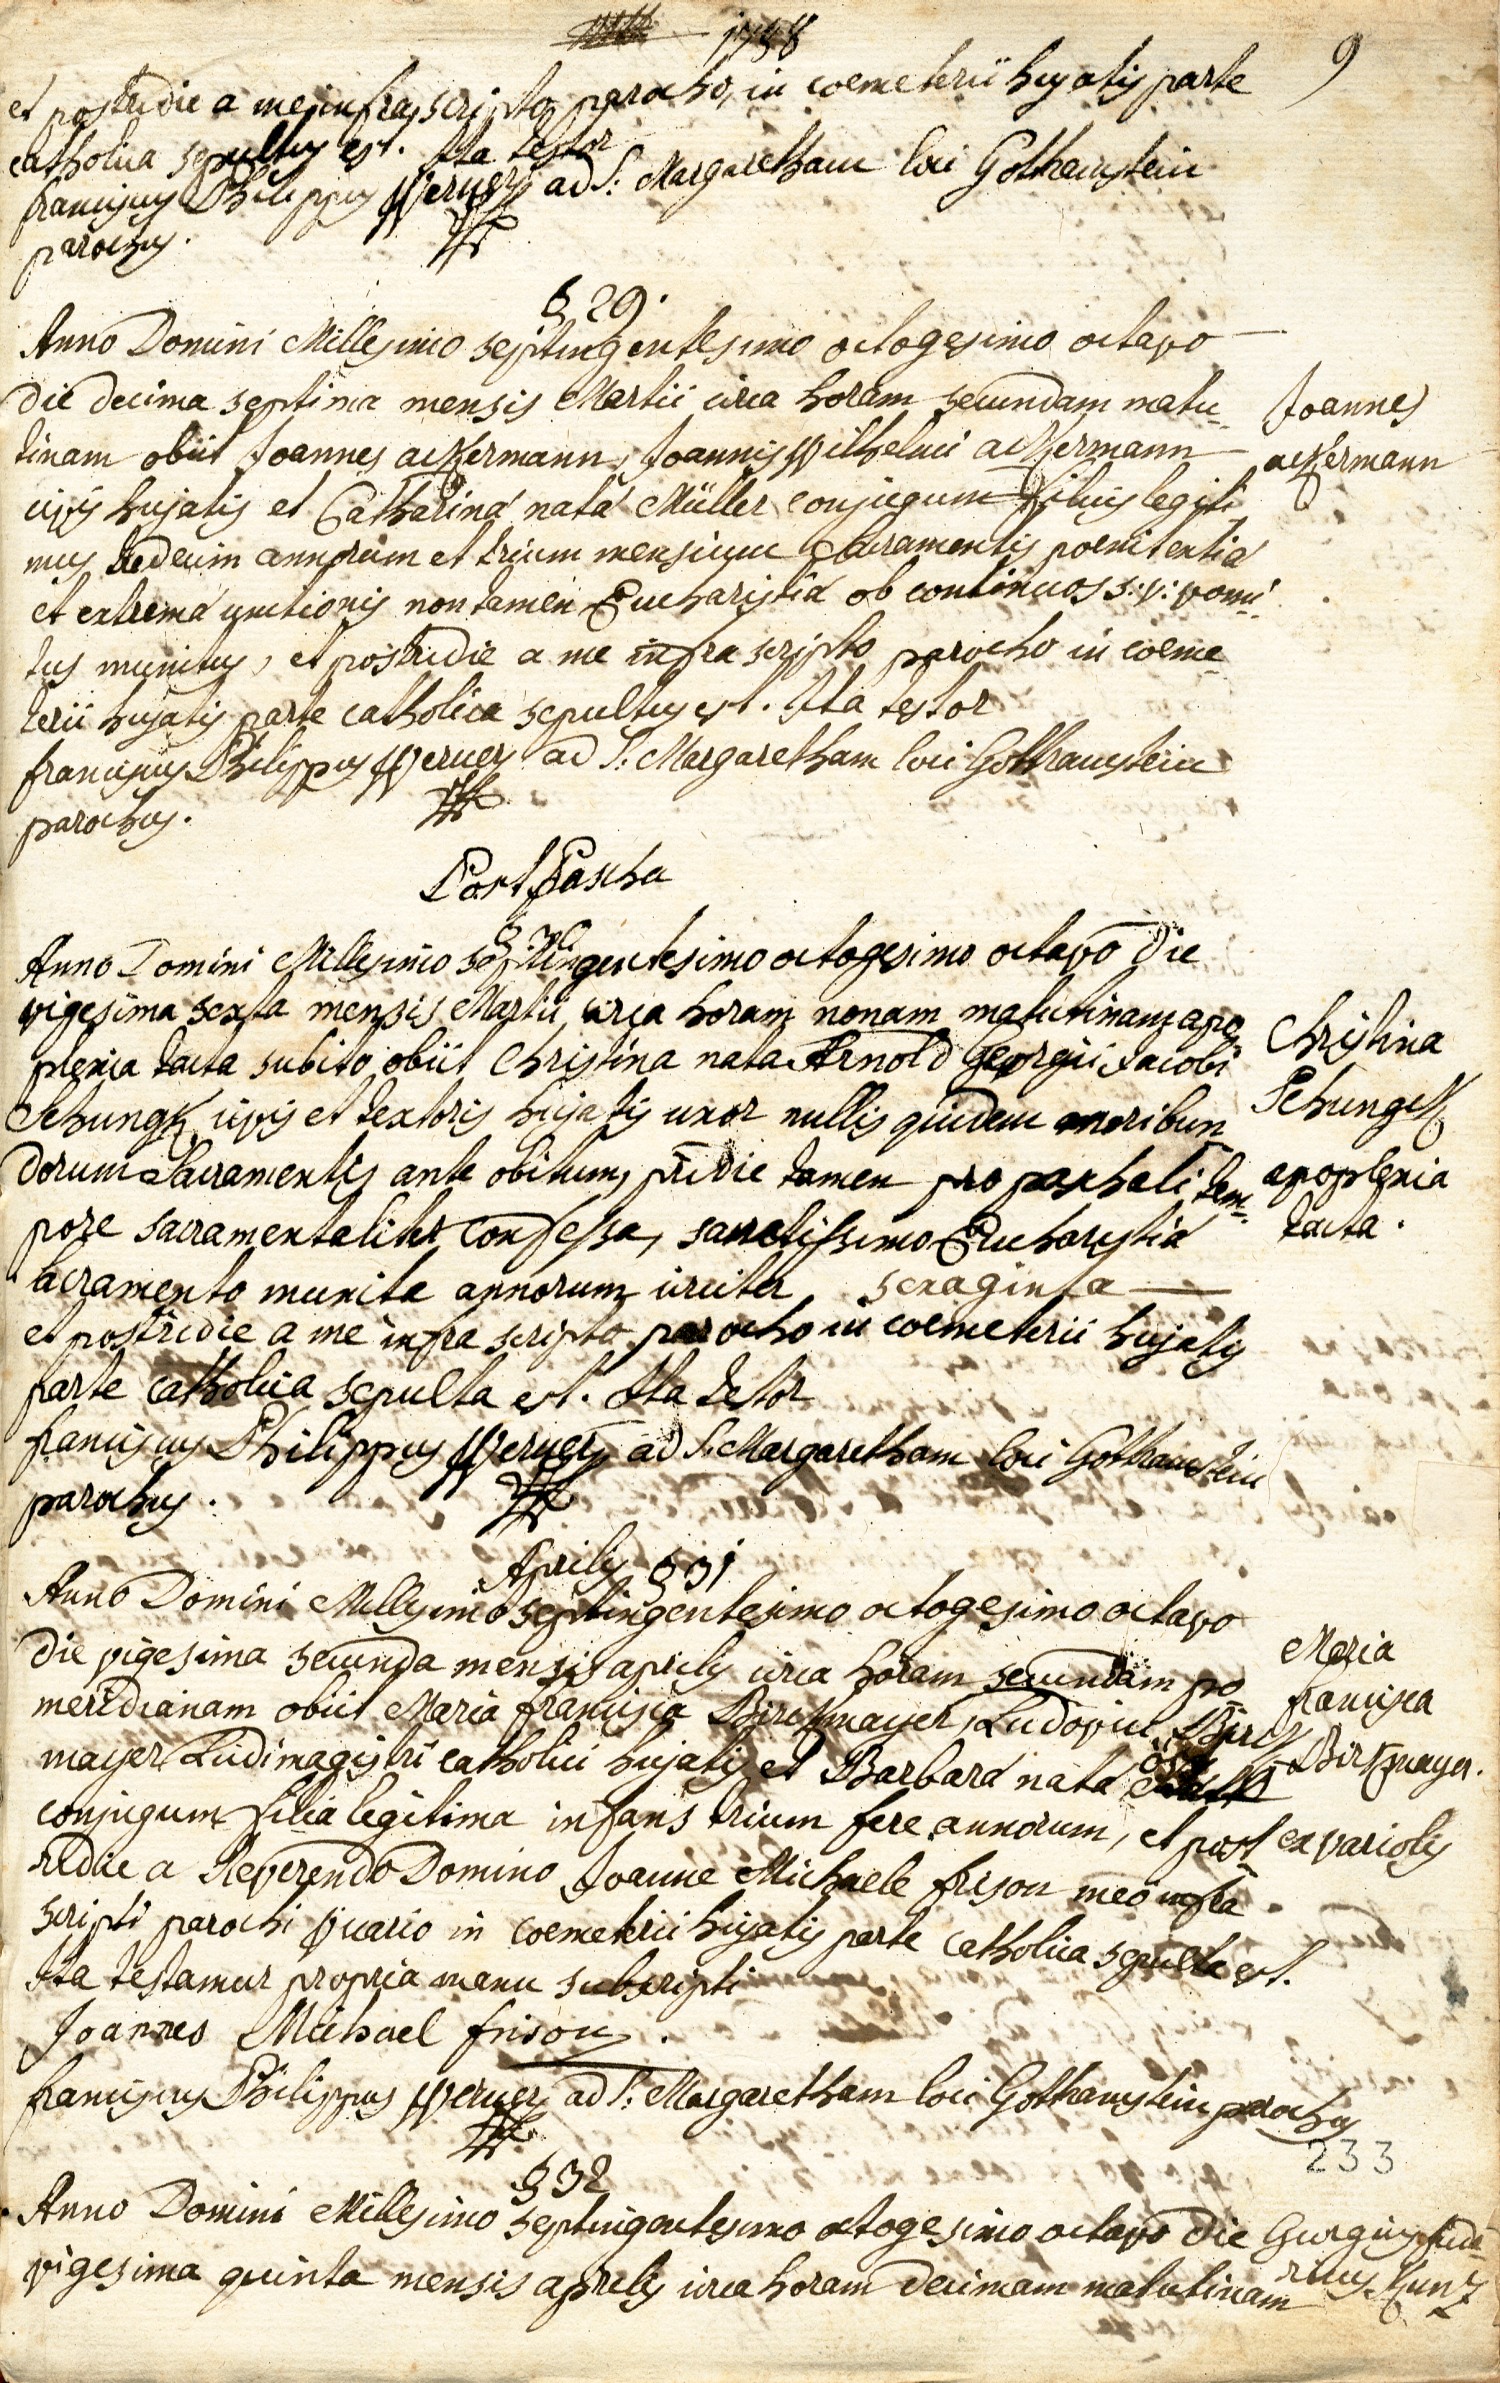 1788
9
et postridie a me infra scripto parocho, in coemeterii hujatis parte
catholica sepultus est. Ita testor
franciscus Philippus Werner ad S: Margaretham loci Gothramstein
parochus.
§ 29.
Anno Domini Millesimo septingentesimo octogesimo octavo
die decima septima mensis Martii circa horam secundam matu-
tinam obiit Joannes ackermann, Joannis Wilhelmi ackermann
civis hujatis et Catharinâ natâ Müller conjugum filius legiti
mus annorum et trium mensium Sacramentis poenitentiâ
et extremâ unctionis non tamen Eucharistiâ ob continuos s:v: vomi-
tus munitus, et postridie a me infra scripto parocho in coeme-
terii hujatis parte catholica sepultus est. Ita testor
franciscus Philippus Werner ad S: Margaretham loci Gothramstein
parochus.
Joannes
ackermann
Post Pascha
§ 30
Anno Domini Millesimo septingentesimo octogesimo octavo die
vigesima sexta mensis Martii circa horam nonam matutinam apo-
plexia tacta subito obiit Christina nata Arnold Georgii Jacobi
Schungk civis et textoris hujatis uxor nullis quidem moribun
dorum Sacramentis ante obitum, pridie tamen pro paschali tem-
pore sacramentaliter confessa, sanctissimo Eucharistiâ
sacramento munita annorum circiter sexaginta
et postridie a me infra scripto parocho in coemeterii hujatis
parte catholica sepulta est. Ita testor
franciscus Philippus Werner ad S: Margaretham loci Gothramstein
parochus.
Christina
Schungk
apoplexia
tacta.
Aprilis § 31
Anno Domini Millesimo septingentesimo octogesimo octavo
die vigesima secunda mensis aprilis circa horam secundam po
meridianam obiit Maria francisca Birckmayer, Ludovici Birck
mayer Ludimagistri catholici hujatis et Barbarâ natâ
conjugum filia legitima infans trium fere annorum, et post
ridie a Reverendo Domino Joanne Michaele frison meo infra
scripti parochi vicario in coemeterii hujatis parte catholica sepulta est.
Ita testamur propria manu subscripti
Joannes Michael frison.
franciscus Philippus Werner ad S: Margaretham loci Gothramstein parochus
Maria
francisca
Birkmayer.
ex variolis
233
§ 32
Anno Domini Millesimo septingentesimo octogesimo octavo die
vigesima quinta mensis aprilis circa horam decimam matutinam
Georgius fride-
ricus Kunz